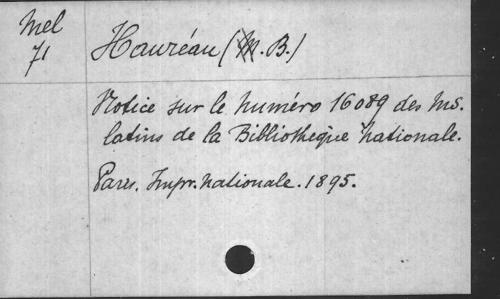 Mel
71
Hauréau (M. B.)
Notice sur le numéro 16089 des ms.
latins de la Bibliothèque nationale.
Paris. Impr. nationale. 1895.